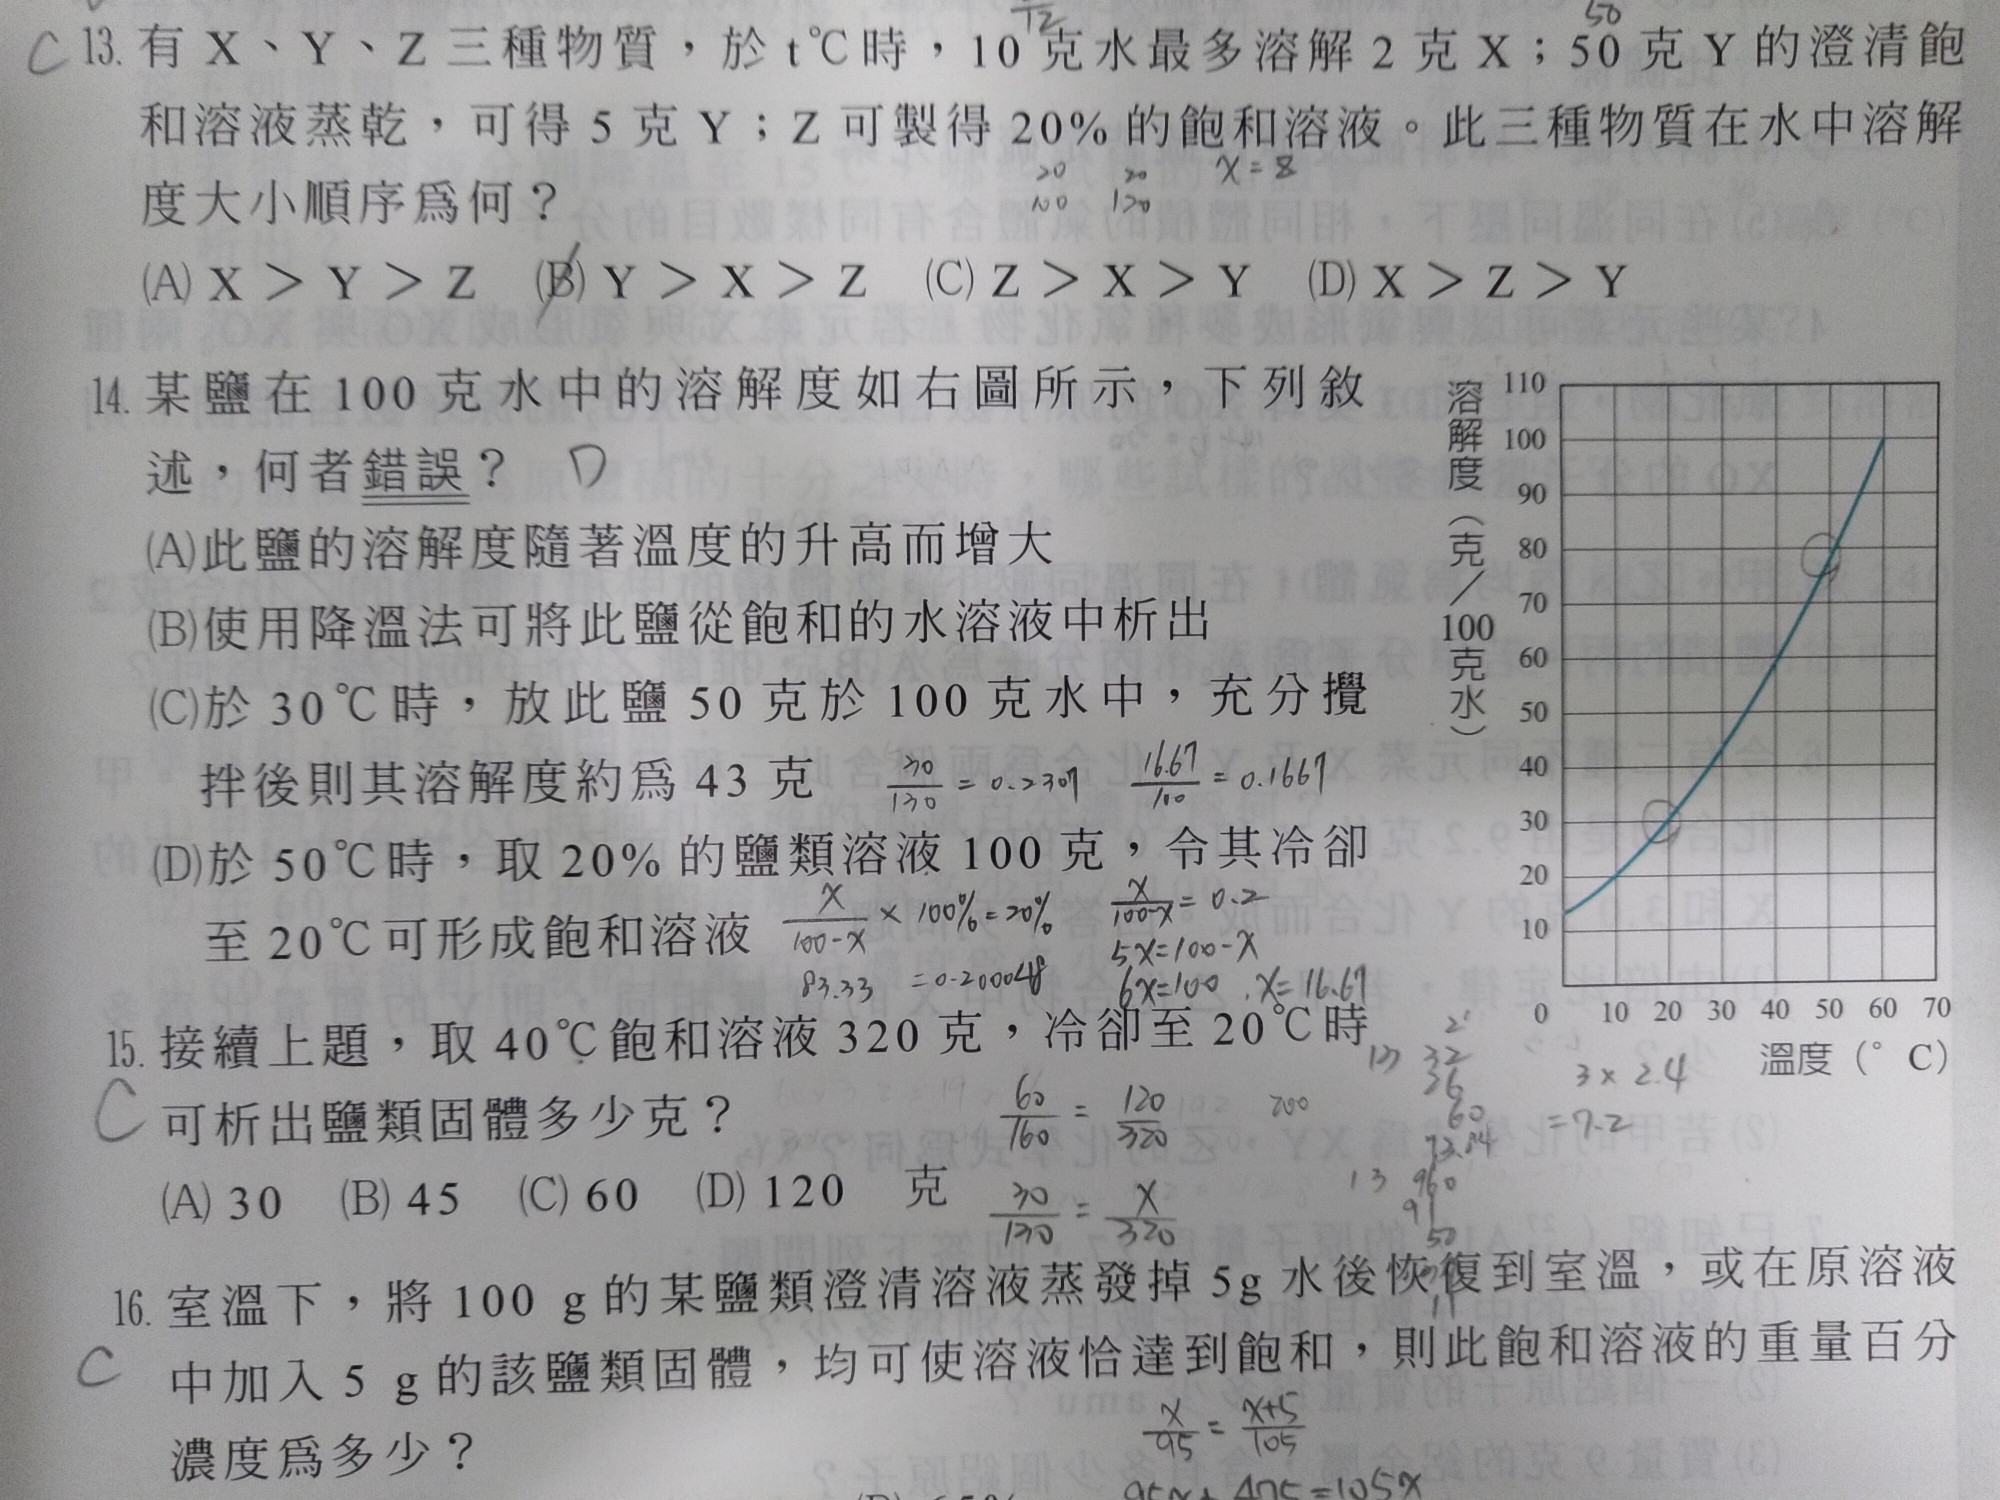 C 13. 有 X、Y、Z 三種物質，於 t℃時，10 克水最多溶解 2 克 X；50 克 Y 的澄清飽
和溶液蒸乾，可得 5 克 Y；Z 可製得 20% 的飽和溶液。此三種物質在水中溶解
x=8
度大小順序爲何？
(A) X > Y > Z (B) Y > X > Z (C) Z > X > Y (D) X > Z > Y
14. 某鹽在 100 克水中的溶解度如右圖所示，下列敘
述，何者錯誤？ D
(A)此鹽的溶解度隨著溫度的升高而增大
(B)使用降溫法可將此鹽從飽和的水溶液中析出
(C)於 30℃時，放此鹽 50 克於 100 克水中，充分攪
拌後則其溶解度約爲 43 克 30/130 = 0.2307 16.67/100 = 0.1667
(D)於 50℃時，取 20% 的鹽類溶液 100 克，令其冷卻
至 20℃可形成飽和溶液 x/100-x × 100% = 20% x/100-x = 0.2
5x=100-x
83.33 =0.200048 6x=100 x=16.67
溶解度（克／100克水）
110
100
90
80
70
60
50
40
30
20
10
0 10 20 30 40 50 60 70
溫度（°C）
15. 接續上題，取 40℃飽和溶液 320 克，冷卻至 20℃時
C 可析出鹽類固體多少克？ 60/160 = 120/320
3×2.4
=7.2
(A) 30 (B) 45 (C) 60 (D) 120 克
30/130 = x/320
16. 室溫下，將 100 g 的某鹽類澄清溶液蒸發掉 5g 水後恢復到室溫，或在原溶液
C 中加入 5 g 的該鹽類固體，均可使溶液恰達到飽和，則此飽和溶液的重量百分
濃度爲多少？ x/95 = x+5/105
95x+475=105x